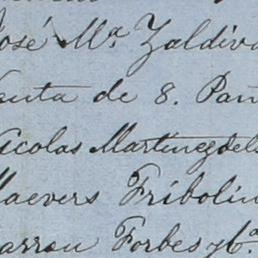 José Mª Zaldiva
enta de 8. Pan
icolas Martinez del
Maevers Fribolin
arrau Forbes y Cª